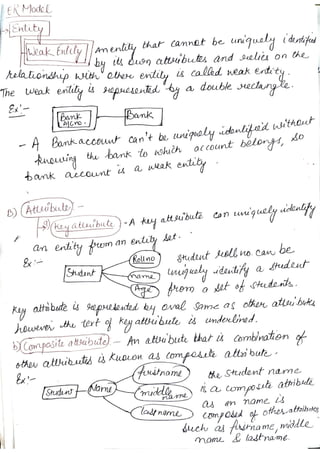 ER Model
→ Entity
Weak Entity An entity that cannot be uniquely identified
by its own attributes and relies on the
relationship with other entity is called weak entity.
The weak entity is represented by a double rectangle.
Ex:-
Bank Acno. Bank
- A Bank account can't be uniquely identified without
knowing the bank to which account belongs, so
bank account is a weak entity.
B) Attribute -
a) Key attribute - A key attribute can uniquely identify
an entity from an entity set.
Ex:-
Student Rollno name Age
student roll no can be
uniquely identify a student
from a set of students.
Key attribute is represented by oval same as other attributes
however the text of key attribute is underlined.
b) Composite attribute - An attribute that is combination of
other attributes is known as composite attribute.
Ex:-
Student Name firstname middle name last name
the student name
is a composite attribute
as an name is
composed of other attributes
such as firstname, middle
name & lastname.